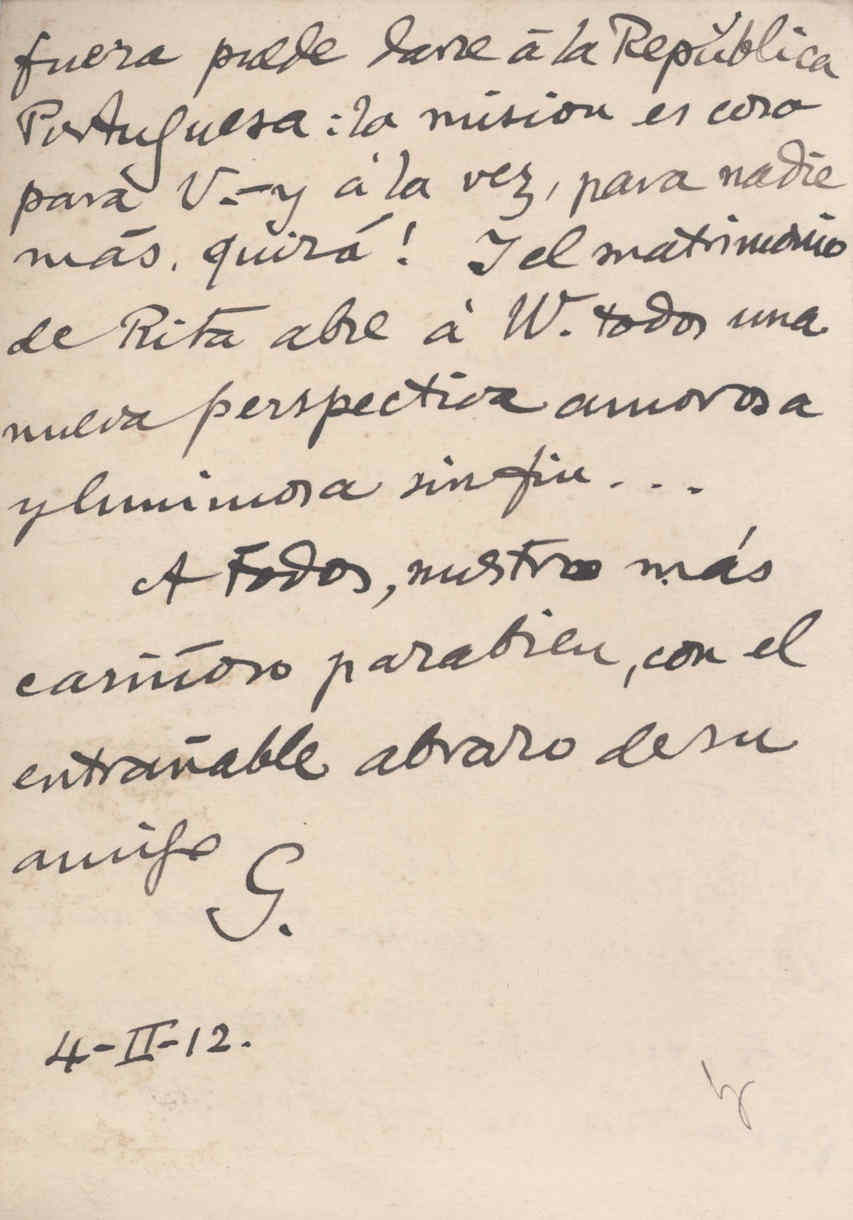 fuera puede darse á la República
Portuguesa: la mision es cosa
para V.–y á la vez, para nadie
más, quizá! Y el matrimonio
de Rita abre á VV. todos una
nueva perspectiva amorosa
y luminosa sin fin...
A todos, nuestro más
cariñoso parabien, con el
entrañable abrazo de su
amigo
G.
4-II-12.